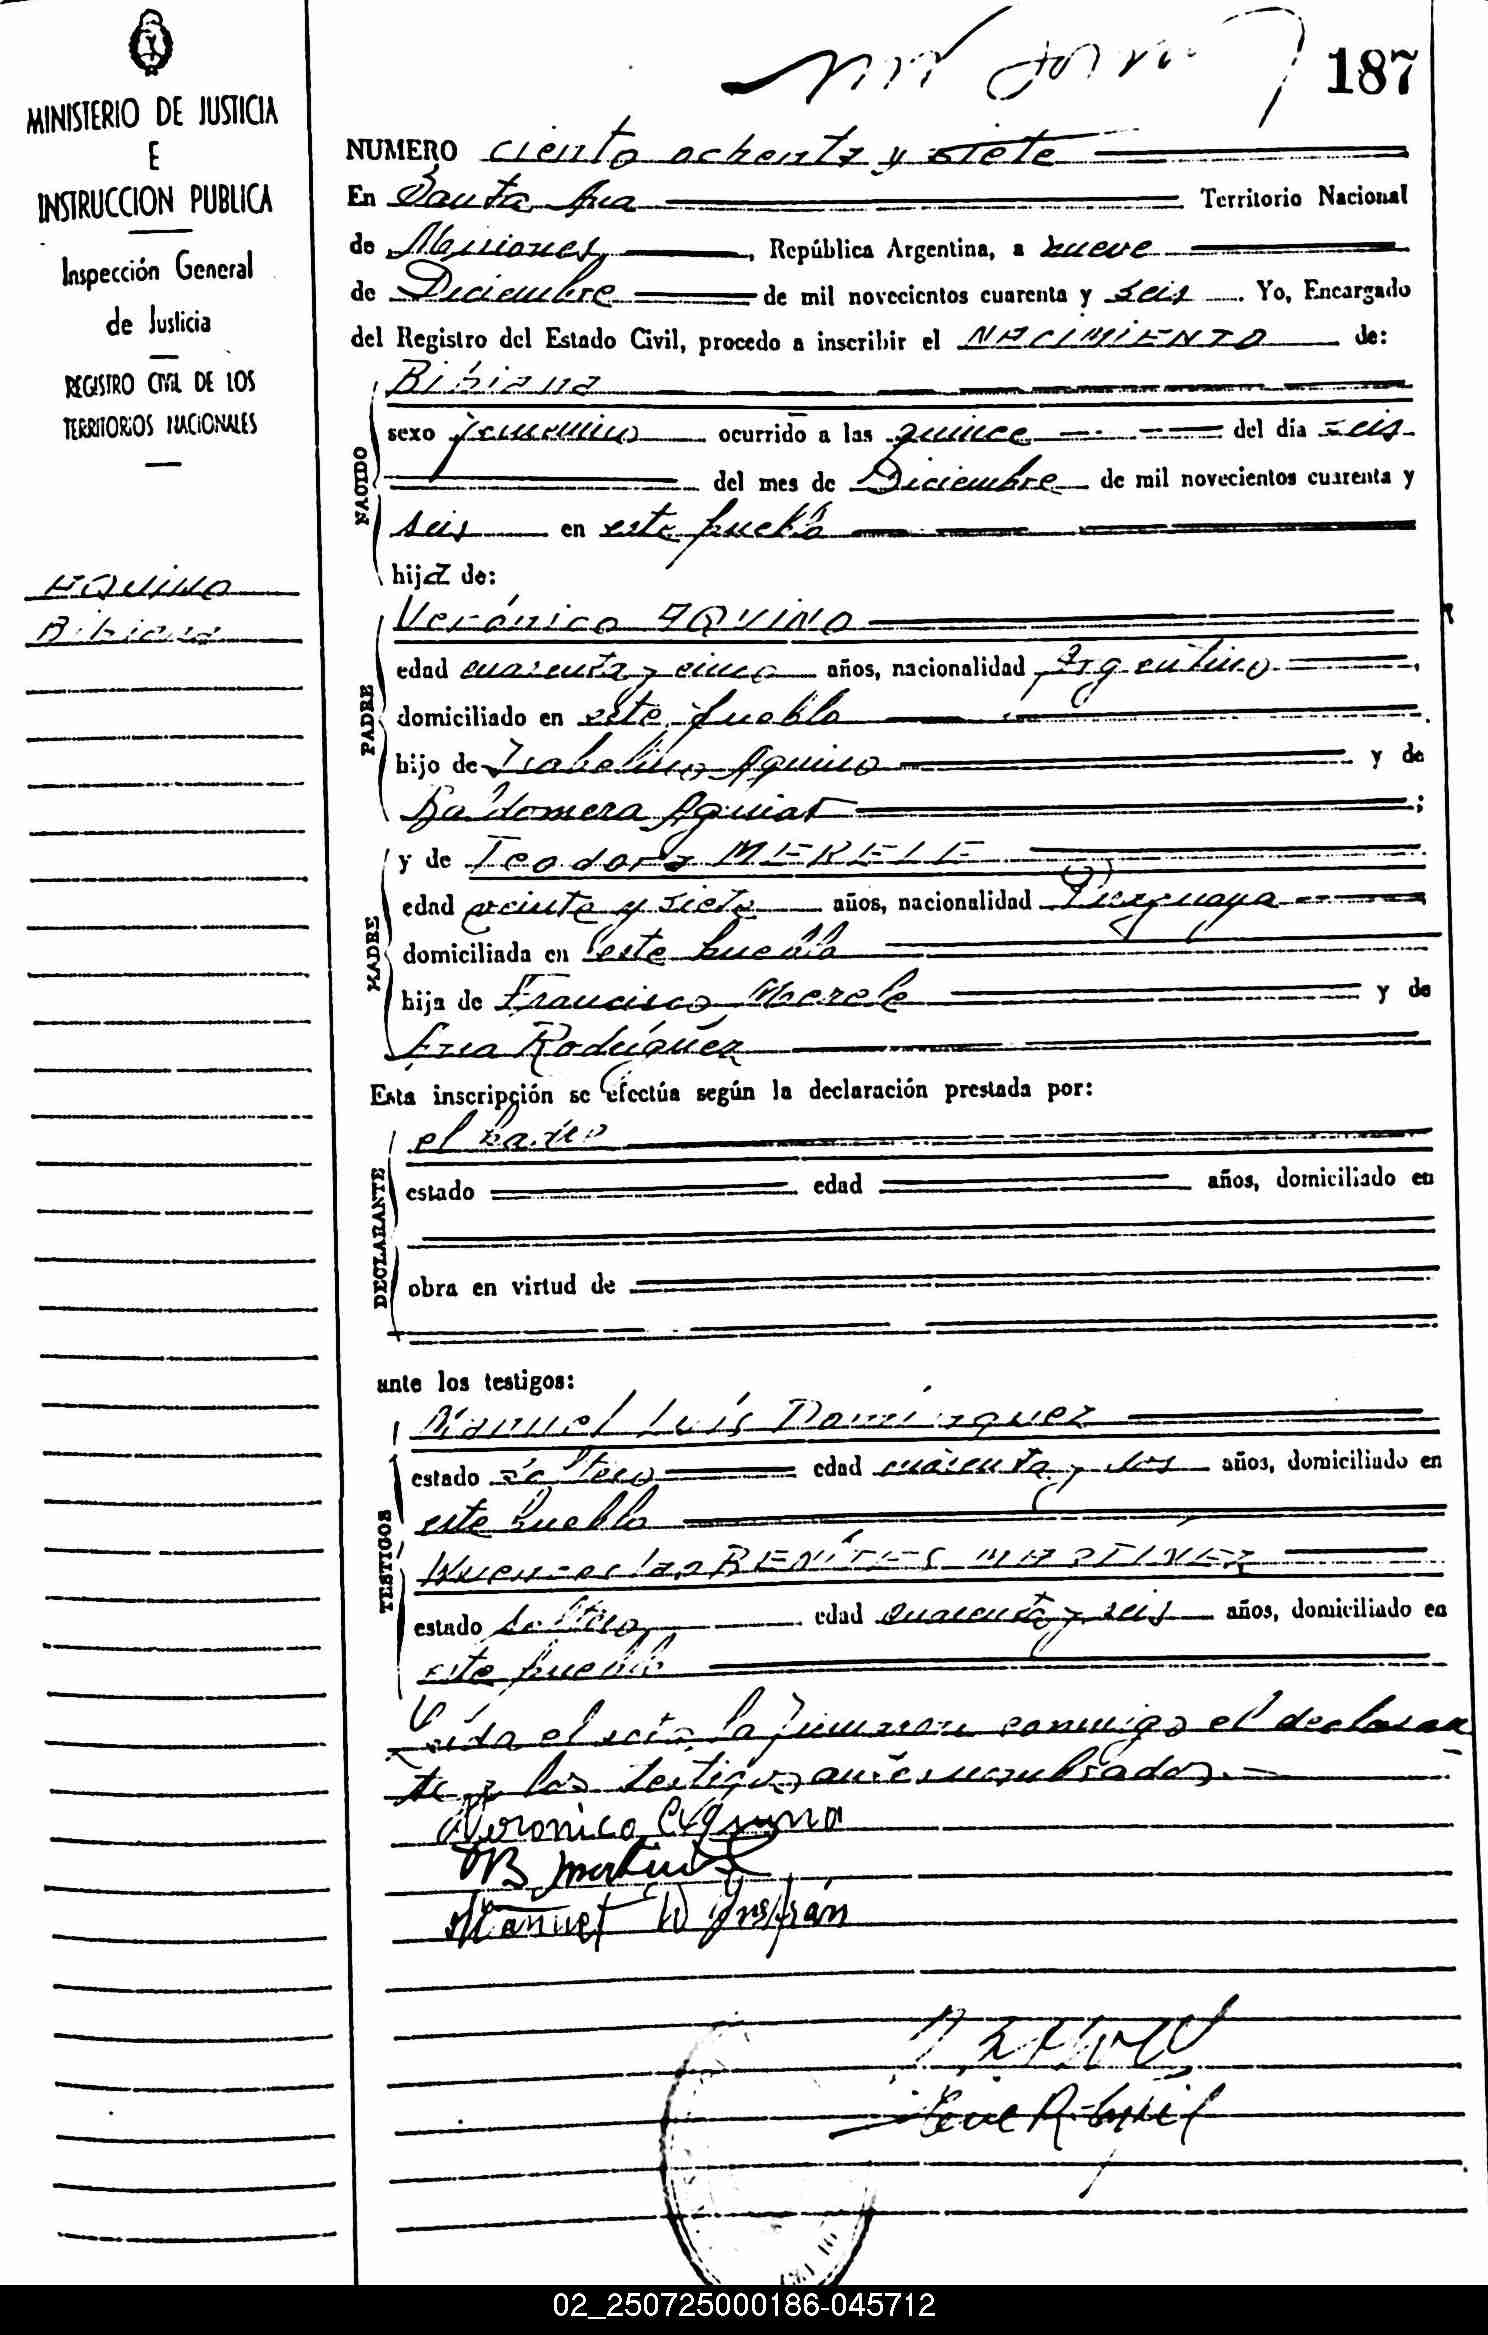 187
MINISTERIO DE JUSTICIA
E
INSTRUCCION PUBLICA
Inspección General
de Justicia
REGISTRO CIVIL DE LOS
TERRITORIOS NACIONALES
AQUINO
Bibiana
NUMERO ciento ochenta y siete
En Santa Ana Territorio Nacional
de Misiones, República Argentina, a nueve
de Diciembre de mil novecientos cuarenta y seis. Yo, Encargado
del Registro del Estado Civil, procedo a inscribir el NACIMIENTO de:
NACIDO
Bibiana
sexo femenino ocurrido a las quince del día seis
del mes de Diciembre de mil novecientos cuarenta y
seis en este pueblo
hija de:
PADRE
Verónico AQUINO
edad cuarenta y cinco años, nacionalidad Argentino,
domiciliado en este pueblo.
hijo de Isabelino Aquino y de
Baldomera Aguiar;
MADRE
y de Teodora MERELE
edad veinte y siete años, nacionalidad Paraguaya
domiciliada en este pueblo
hija de Francisco Merele y de
Ana Rodríguez
Esta inscripción se efectúa según la declaración prestada por:
DECLARANTE
el padre
estado edad años, domiciliado en
obra en virtud de
ante los testigos:
TESTIGOS
Manuel Luís Domínguez
estado soltero edad cuarenta y dos años, domiciliado en
este pueblo
Wuenceslao BENÍTES MARTÍNEZ
estado soltero edad cuarenta y seis años, domiciliado en
este pueblo
Leida el acta la firman conmigo el declaran
te y los testigos antes nombrados.
Veronico Aquino
B Martinez
Manuel
02_250725000186-045712